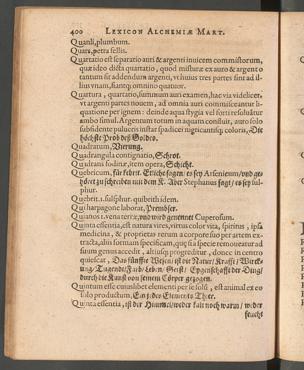 400 LEXICON ALCHEMIÆ MART.
Quanli, plumbum.
Quars, petra fellis.
Quartatio est separatio auri & argenti inuicem commistorum,
quæ ideo dicta quartatio, quod misturæ ex auro & argento
tantum sit addendum argenti, vt huius tres partes sint ad il-
lius vnam, siantq; omnino quatuor.
Quartura, quartatio, summum auri examen, hac via videlicet,
vt argenti partes nouem, ad omnia auri comisceantur li-
quatione per ignem: deinde aqua stygia vel forti resoluitur
ambo simul. Argentum totum in aquam consistit, auro solo
subsidente pulueris instar spadicei nigricantisq; coloris, Die
höchste Prob deß Goldes.
Quadratum, Vierung.
Quadrangula contignatio, Schrot.
Quadrans fodinæ, item opera, Schicht.
Quebricum, für kebrit. Etliche sagen/ es sey Arsenicum/ vnd ge-
hört zu schreiben mit dem K. Aber Stephanus sagt/ es sey sul-
phur.
Quebrit. i. sulphur. quibrith idem.
Quianos i. vena terræ, vnd wird genennet Cuperosum.
Quinta essentia, est natura vires, virtus color vita, spiritus,
medicina, & proprietas rerum a corpore suo per artem ex-
tracta, alij formam specificam, quæ sit a specie remoueatur ad
suum quiescit, Das fünffte Wesen/ ist die Natur/ Krafft/ Wirck-
ung/ Tugendt/ Farb/ Leben/ Geist/ Eygenschafft der Ding/
durch die Kunst von jenem Cörper gezogen.
Quintum esse cuiuslibet elementi per se solũ, est animal ex eo
solo productum. Ein jedes Elements Thier.
Quinta essentia, ist der Himmel/ weder kalt noch warm/ weder
feucht